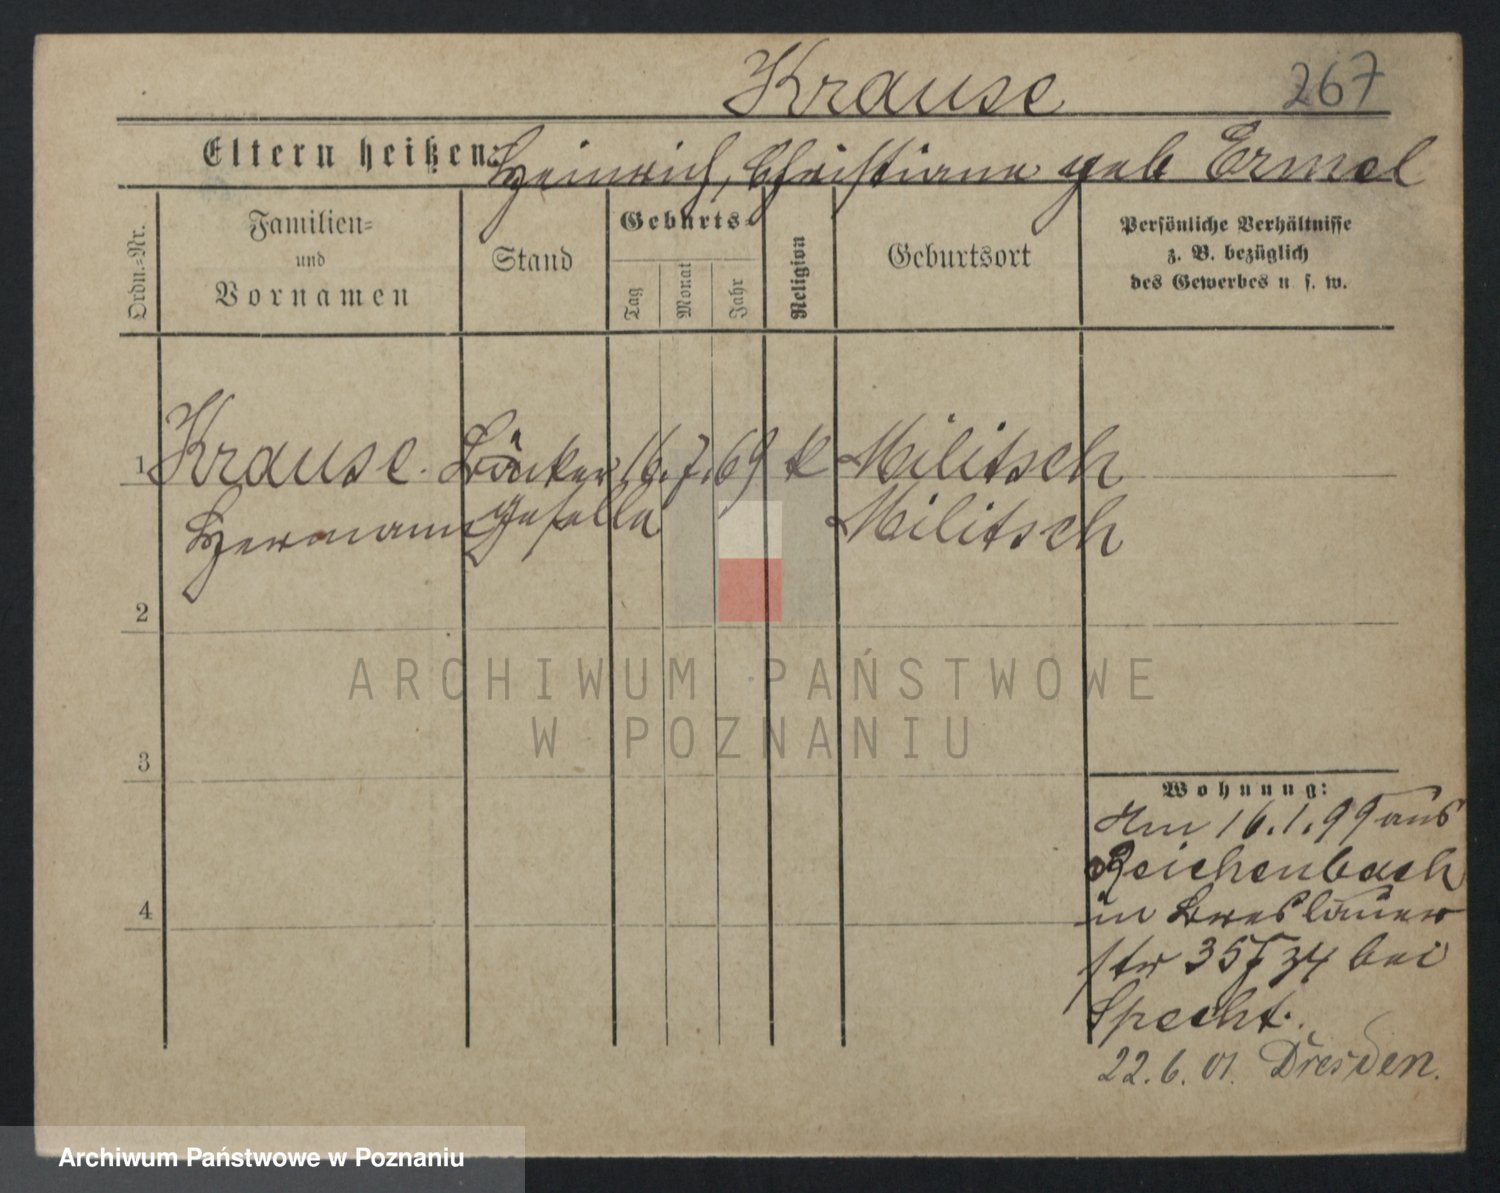 Krause 267
Eltern heißen: Heinrich, Christiane geb Ermel
Ordn.-Nr.
Familien-
und
Vornamen
Stand
Geburts-
Tag
Monat
Jahr
Religion
Geburtsort
Persönliche Verhältnisse
z. B. bezüglich
des Gewerbes u. s. w.
1 Krause. Bäcker 16. 7. 69 k Militsch
Hermann geselle Militsch
2
3
4
Wohnung:
Am 16.1.99 aus
Reichenbach
in Breslauer
str 35 34 bei
Specht.
22.6.01. Dresden.
ARCHIWUM PAŃSTWOWE
W POZNANIU
Archiwum Państwowe w Poznaniu